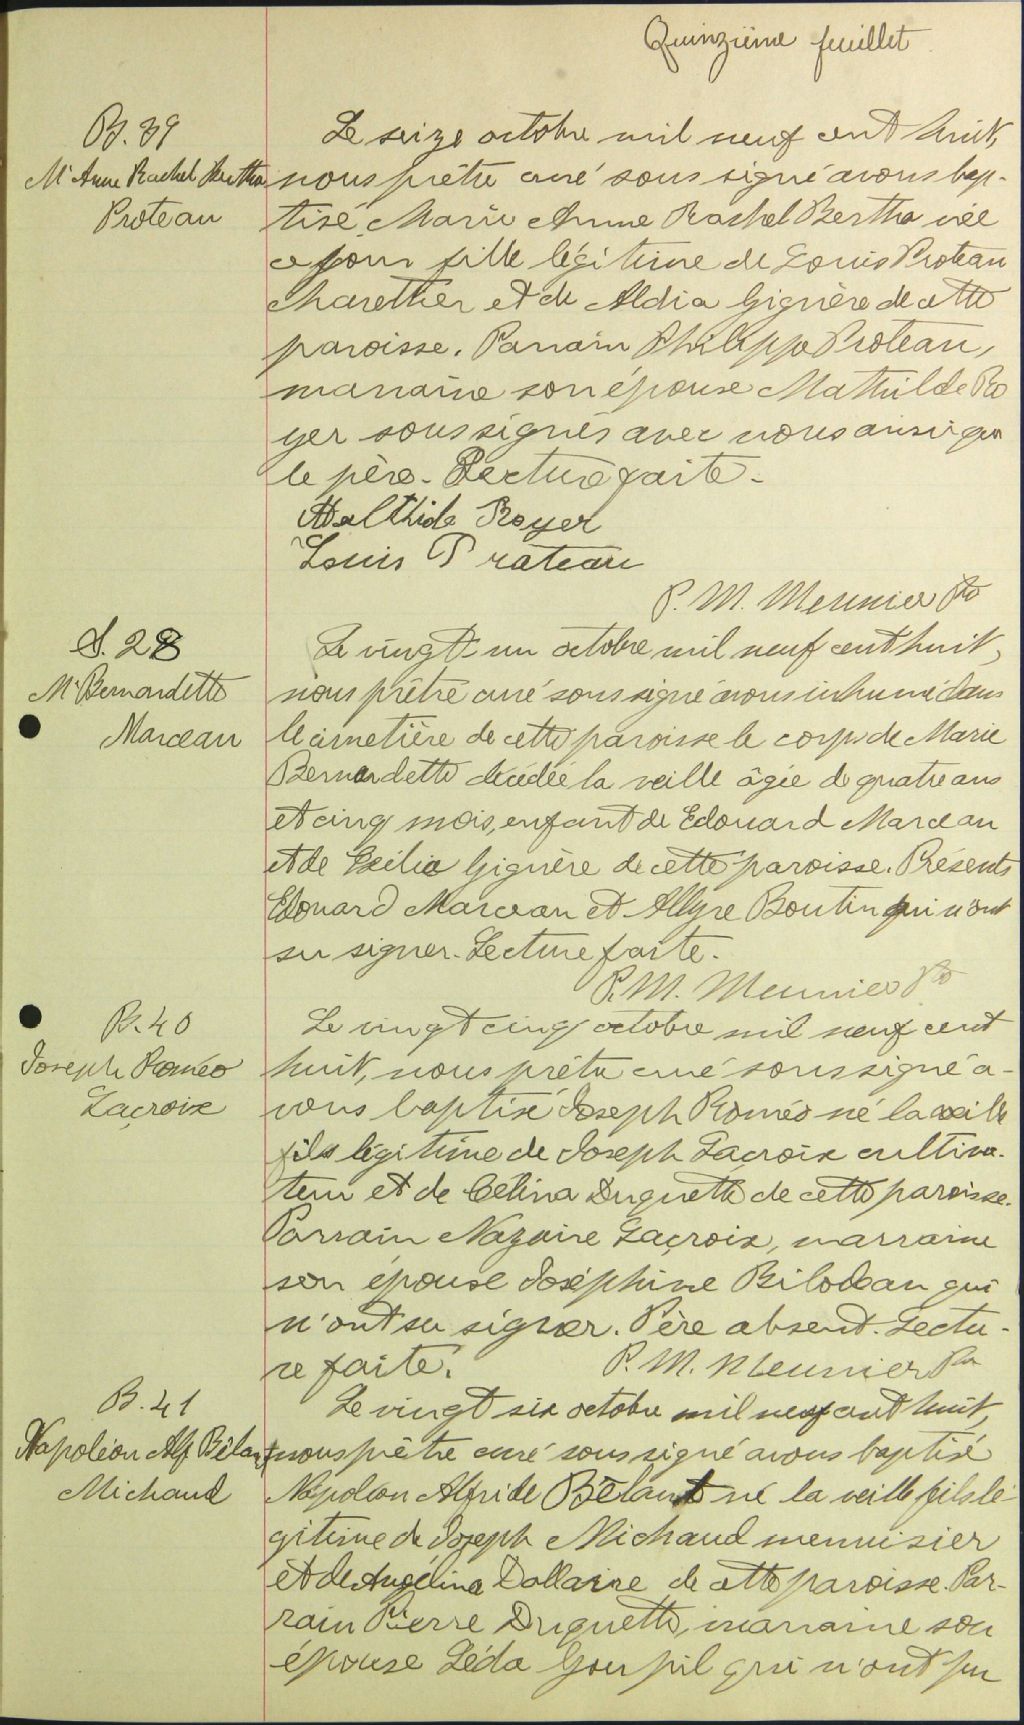 Quinzième feuillet
B. 39
Mie Anne Rachel Bertha
Proteau
Le seize octobre mil neuf cent huit,
nous prêtre curé sous signé avons bap-
tisé Marie Anne Rachel Bertha née
ce jour fille légitime de Louis Proteau
charettier et de Aldia Giguère de cette
paroisse. Parrain Philippe Proteau,
marraine son épouse Mathilde Ro
yer soussignés avec nous ainsi que
le père. Lecture faite.
Mathilde Royer
Louis Proteau
P. M. Meunier Ptre
S. 28
Mie Bernardette
Marceau
Le vingt-un octobre mil neuf cent huit,
nous prêtre curé soussigné avons inhumé dans
le cimetière de cette paroisse le corps de Marie
Bernardette décédée la veille âgée de quatre ans
et cinq mois, enfant de Edouard Marceau
et de Exilia Giguère de cette paroisse. Présents
Edouard Marceau et Allyre Boutin qui n'ont
su signer. Lecture faite.
P. M. Meunier Ptre
B. 40
Joseph Roméo
Lacroix
Le vingt cinq octobre mil neuf cent
huit, nous prêtre curé soussigné a-
vons baptisé Joseph Roméo né la veille
fils légitime de Joseph Lacroix cultiva-
teur et de Célina Duquette de cette paroisse.
Parrain Nazaire Lacroix, marraine
son épouse Joséphine Bilodeau qui
n'ont su signer. Père absent. Lectu-
re faite.
P. M. Meunier Ptre
B. 41
Napoléon Alf Bélant
Michaud
Le vingt six octobre mil neuf cent huit,
nous prêtre curé sous signé avons baptisé
Napoléon Alfride Bélant né la veille fils lé-
gitime de Joseph Michaud menuisier
et de Angélina Dallaire de cette paroisse. Par-
rain Pierre Duquette, marraine son
épouse Léda Goupil qui n'ont pu